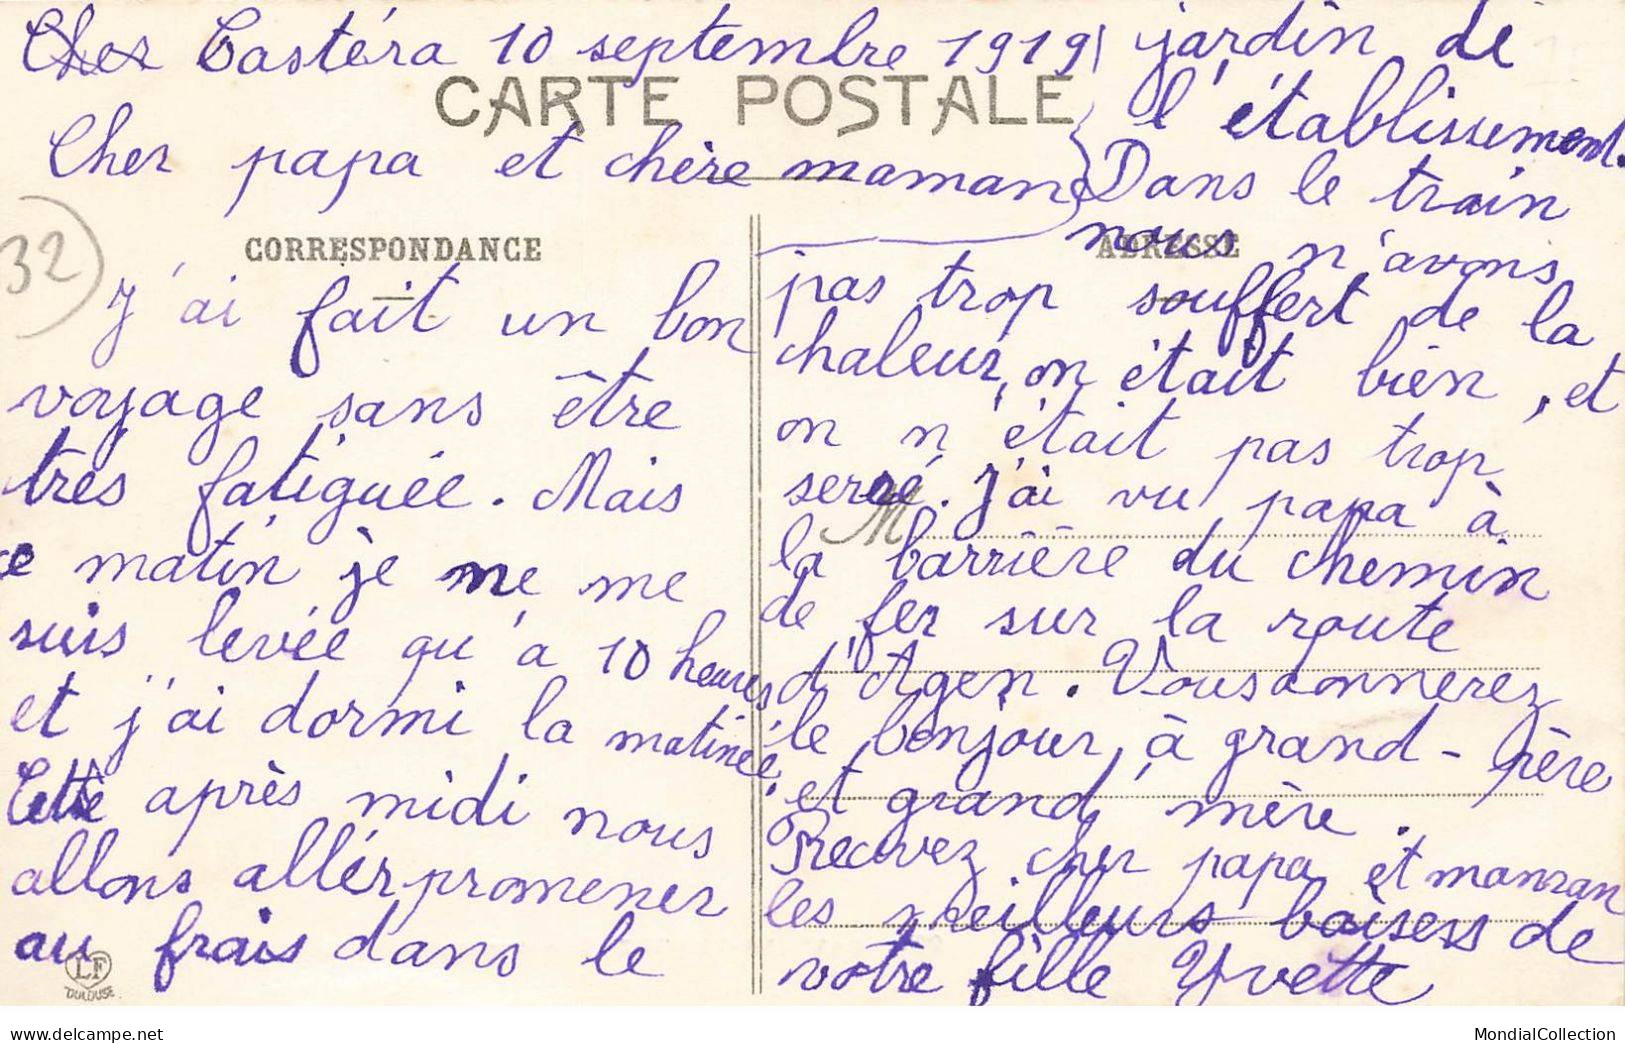 Cher Castéra 10 septembre 1919
CARTE POSTALE
Cher papa et chère maman
CORRESPONDANCE
32
J'ai fait un bon
voyage sans être
très fatiguée. Mais
ce matin je me me
suis levée qu'à 10 heures
et j'ai dormi la matinée.
Cette après midi nous
allons allér promener
au frais dans le
LF
TOULOUSE
jardin de
l'établissement.
Dans le train
nous n'avons
ADRESSE
pas trop souffert de la
chaleur, on était bien, et
on n'était pas trop
serré. J'ai vu papa à
M
la barrière du chemin
de fer sur la route
d'Agen. Vous donnerez
le bonjour à grand-père
et grand mère.
Recevez cher papa et maman
les meilleurs baisers de
votre fille Yvette
delcampe.net
MondialCollection